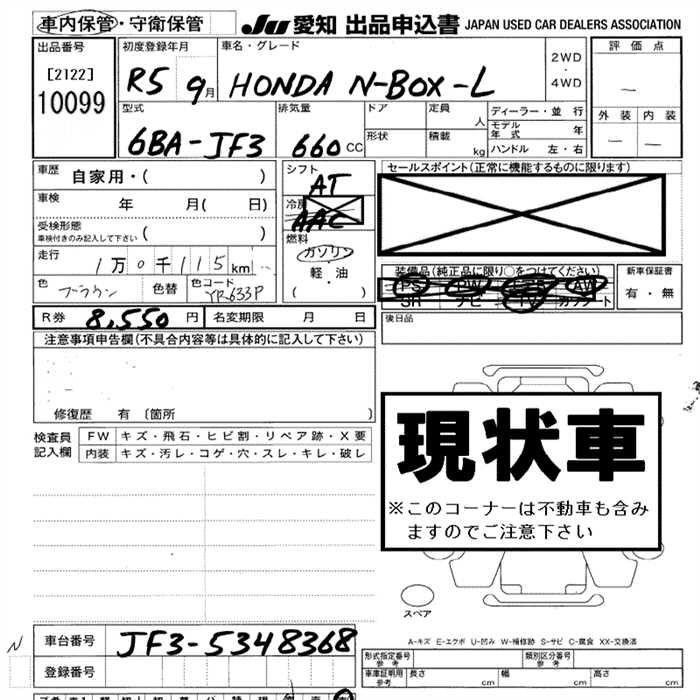 車内保管・守衛保管
JU 愛知 出品申込書 JAPAN USED CAR DEALERS ASSOCIATION
出品番号
[2122]
10099
初度登録年月
R5 9月
車名・グレード
HONDA N-BOX-L
2WD
・
4WD
評価点
—
外装 内装
— —
型式
6BA-JF3
排気量
660 CC
ドア
形状
定員 人
積載 kg
ディーラー・並行
モデル年式 年
ハンドル 左・右
車歴 自家用・( )
車検 年 月( 日)
受検形態
車検付きのみ記入して下さい ( )
走行 1万0千115km
色 ブラウン 色替 色コード YR-633P
シフト
AT
冷房
AAC
燃料
ガソリン
・
軽・油
( )
セールスポイント(正常に機能するものに限ります)
装備品(純正品に限り○をつけてください)
PS PW AW
SR ナビ TV カワシート
新車保証書
有・無
R券 8,550 円 名変期限 月 日
後日品
注意事項申告欄(不具合内容等は具体的に記入して下さい)
修復歴 有 〔箇所 〕
検査員記入欄
FW キズ・飛石・ヒビ割・リペア跡・X要
内装 キズ・汚レ・コゲ・穴・スレ・キレ・破レ
現状車
※このコーナーは不動車も含み
ますのでご注意下さい
スペア
A-キズ E-エクボ U-凹み W-補修跡 S-サビ C-腐食 XX-交換済
N
車台番号 JF3-5348368
登録番号
形式指定番号 参考
類別区分番号 参考
車庫証明用 参考 長さ cm 幅 cm 高さ cm